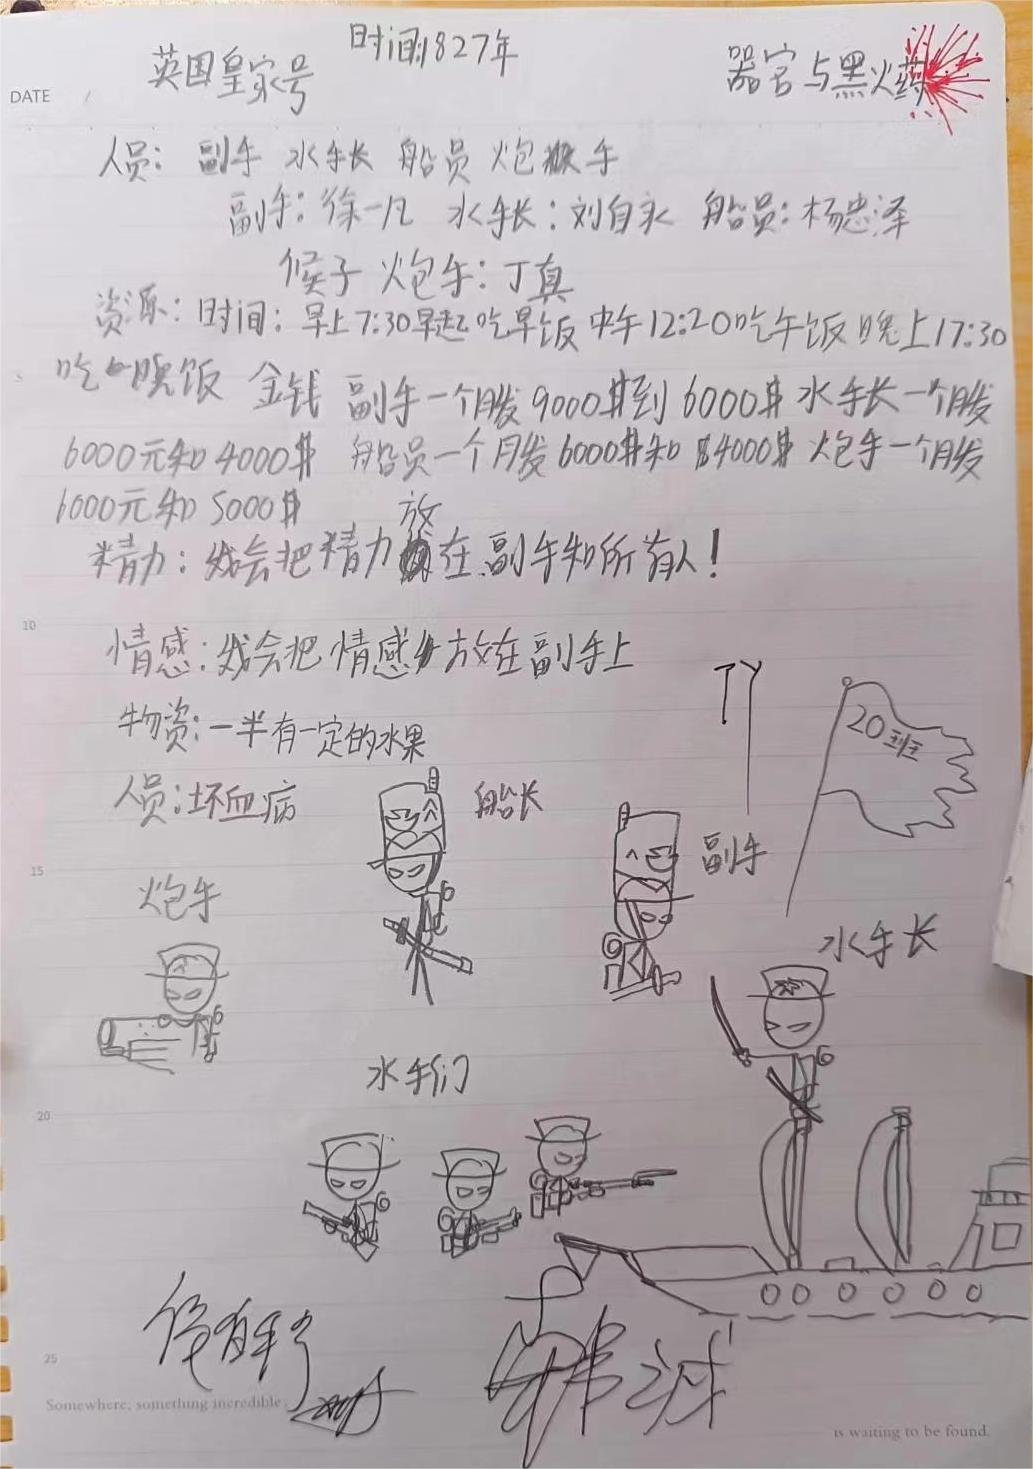 时间1827年
英国皇家号
器官与黑火药
DATE /
人员: 副手 水手长 船员 炮手
副手: 徐一凡 水手长: 刘自永 船员: 杨忠泽
候子 炮手: 丁真
资源: 时间: 早上7:30早起吃早饭 中午12:20吃午饭 晚上17:30
吃晚饭 金钱 副手一个月发9000$到6000$ 水手长一个月发
6000元和4000$ 船员一个月发6000$和$4000$ 炮手一个月发
6000元和5000$
精力: 我会把精力放在副手和所有人!
10
情感: 我会把情感放在副手上
物资: 一半有一定的水果
TY
20班
人员: 坏血病
船长
副手
15
炮手
水手长
水手们
20
25
Somewhere, something incredible
is waiting to be found.